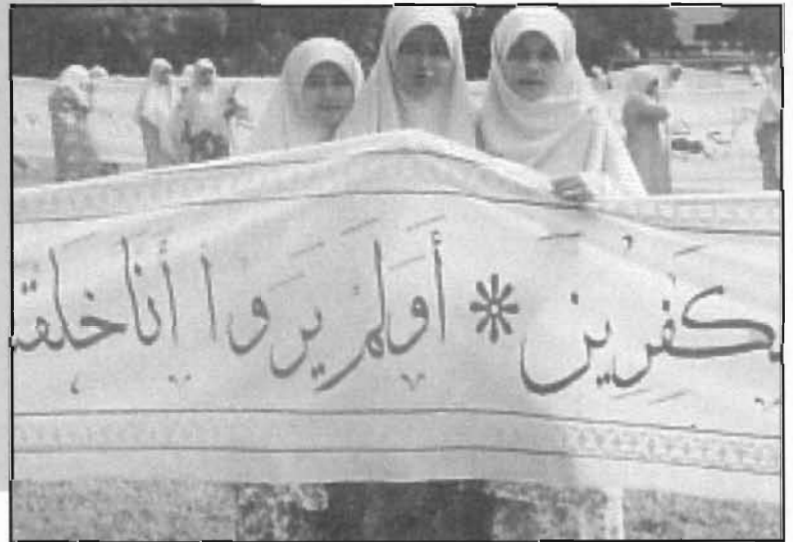 كَفِرِينَ * أَوَلَمْ يَرَوا أَنا خلقـ